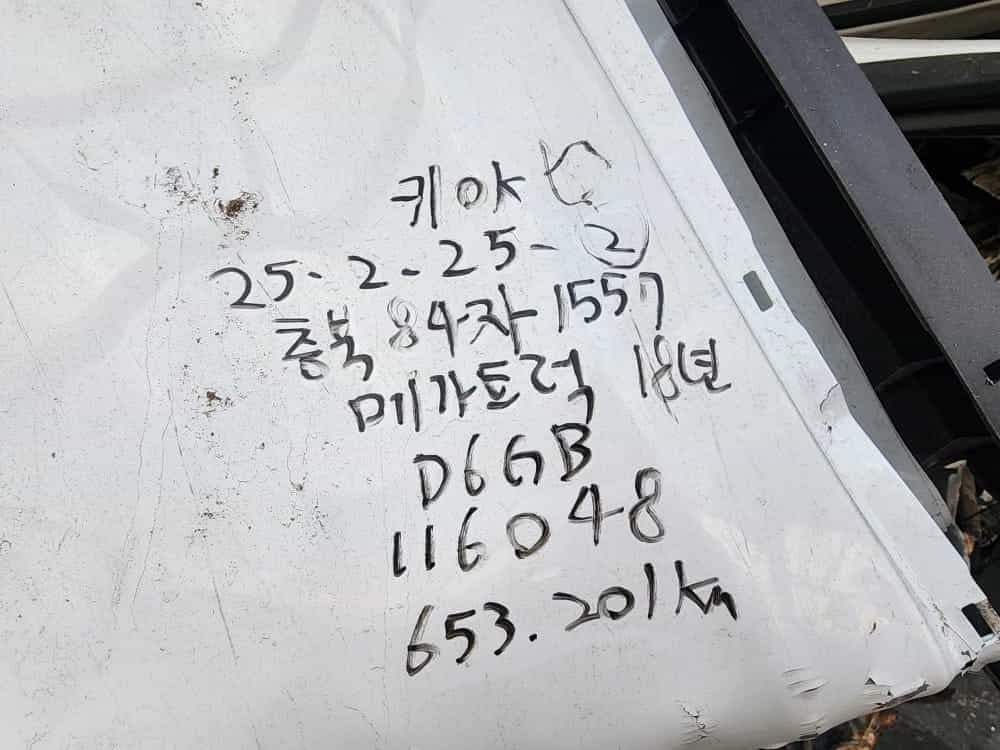 키 OK
25-2-25-②
충북 84자 1557
메가토럭 18년
D6GB
116048
653.201km